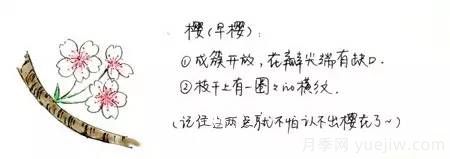 樱(早樱):
①成簇开放,花瓣尖端有缺口.
②枝干上有一圈々的横纹.
(记住这两点就不怕认不出樱花了~)
月季网
www.yuejiw.com